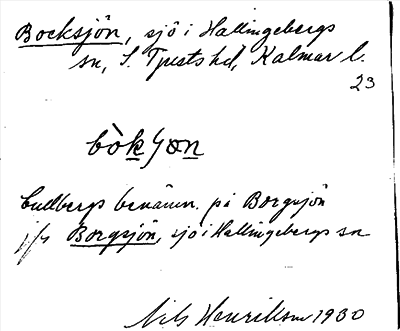 Bocksjön, sjö i Hallingebergs
sn, S. Tjusts hd, Kalmar l.
23
bòkʃon
Cullbergs benämn. på Borgsjön
jfr Borgsjön, sjö i Hallingebergs sn
Nils Henrikson 1930